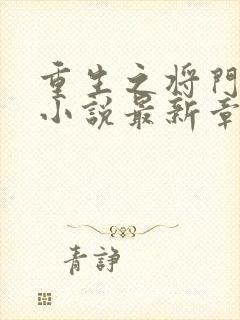 重生之将門
小説最新章
青諍